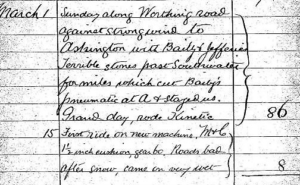 March 1 Sunday along Worthing road
against strong wind to
Ashington with Baily & Jefferies
Terrible stones past Southwater
for miles which cut Baily's
pneumatic at A & stayed us.
Grand day, rode Kinetic 86
15 First ride on new machine, M & C
1½ inch cushion, gearbo. Roads bad
after snow, came on very wet 8